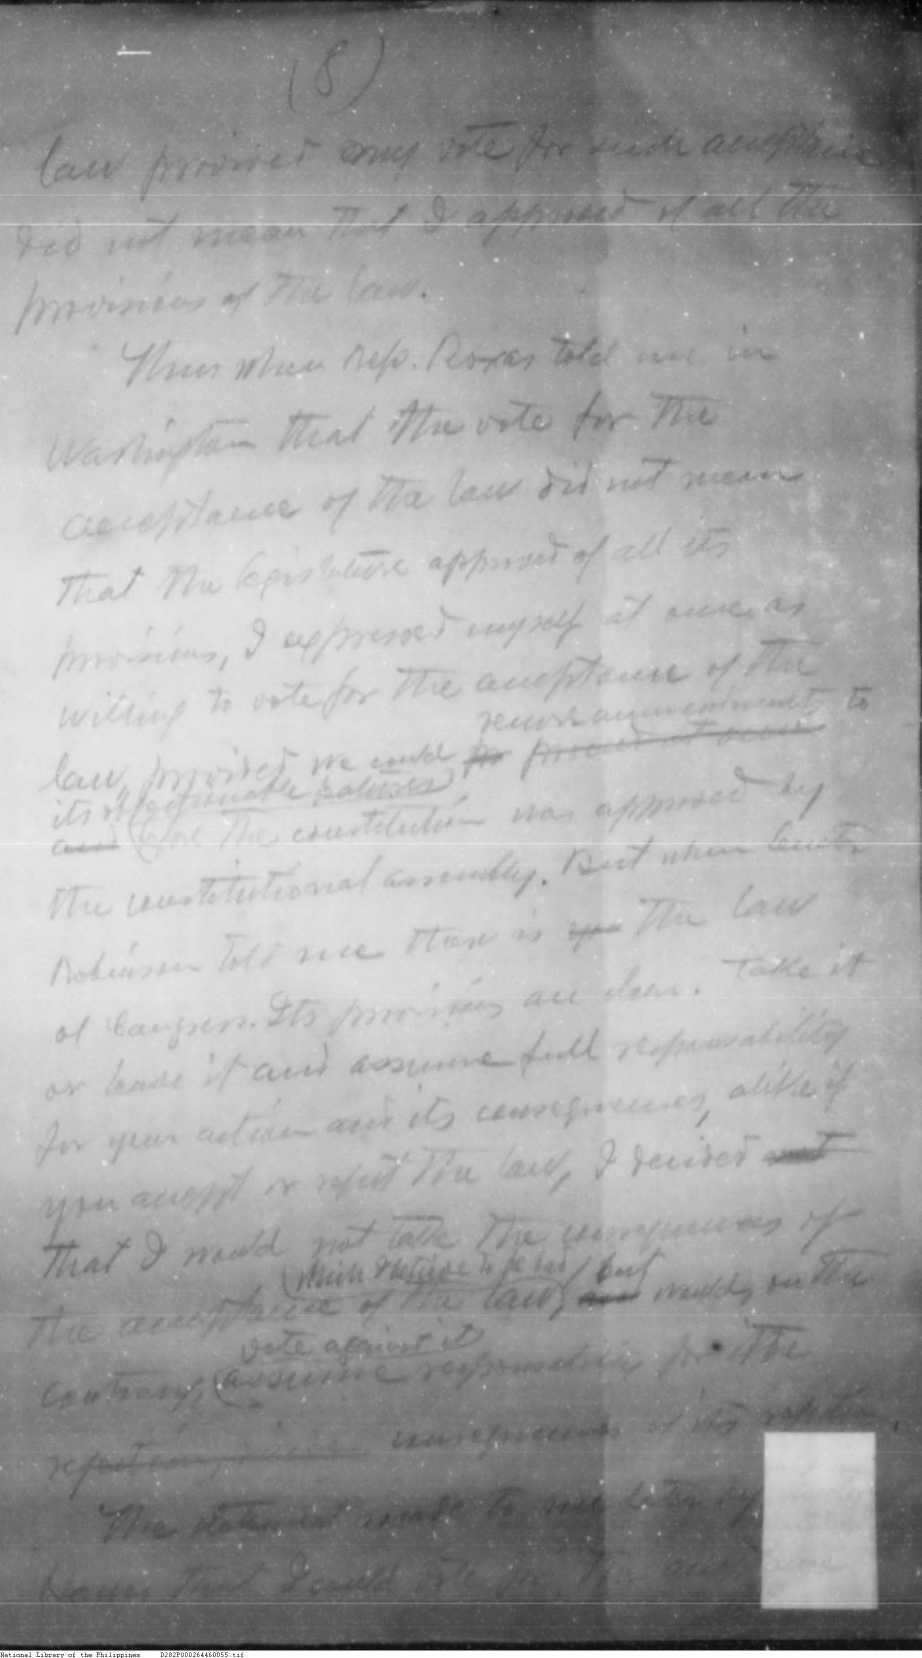 (8)
law provided my vote for such acceptance
did not mean that I approved of all the
provisions of the law.
Thus when Rep. Roxas told me in
Washington that the vote for the
acceptance of the law did not mean
that the legislature approved of all its
provisions, I expressed myself at once as
willing to vote for the acceptance of the
secure amendments to
law, provided we could for proceed at once
its objectionable features
and before the constitution was approved by
the constitutional assembly. But when Senator
Robinson told me there is the law
of Congress. Its provisions are clear. Take it
or leave it and assume full responsability
for your action and its consequences, alike if
you accept or reject the law, I decided not
that I would not take the consequences of
which but
the acceptance of the law, and would, on the
vote against it
contrary, assume for the
rejection, consequences of its rejection.
The statement made to me later by
that I could vote for the acceptance
National Library of the Philippines D282P000264460055.tif